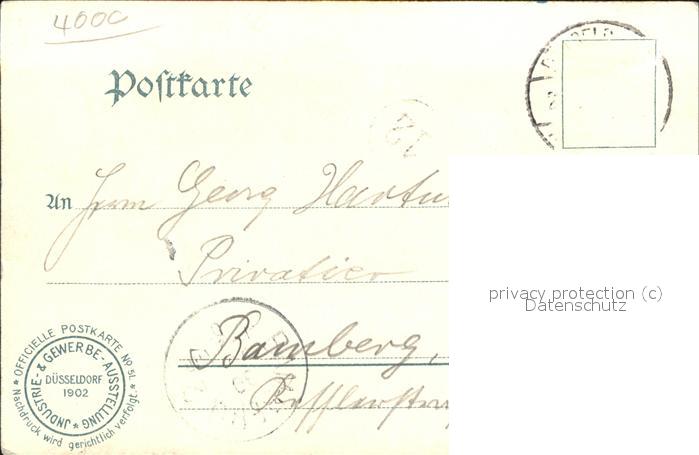 4000
Postkarte
12
An Herrn Georg
Privatier
Bamberg,
OFFICIELLE POSTKARTE No 51.
JNDUSTRIE- & GEWERBE-AUSSTELLUNG
DÜSSELDORF
1902
Nachdruck wird gerichtlich verfolgt.
privacy protection (c)
Datenschutz